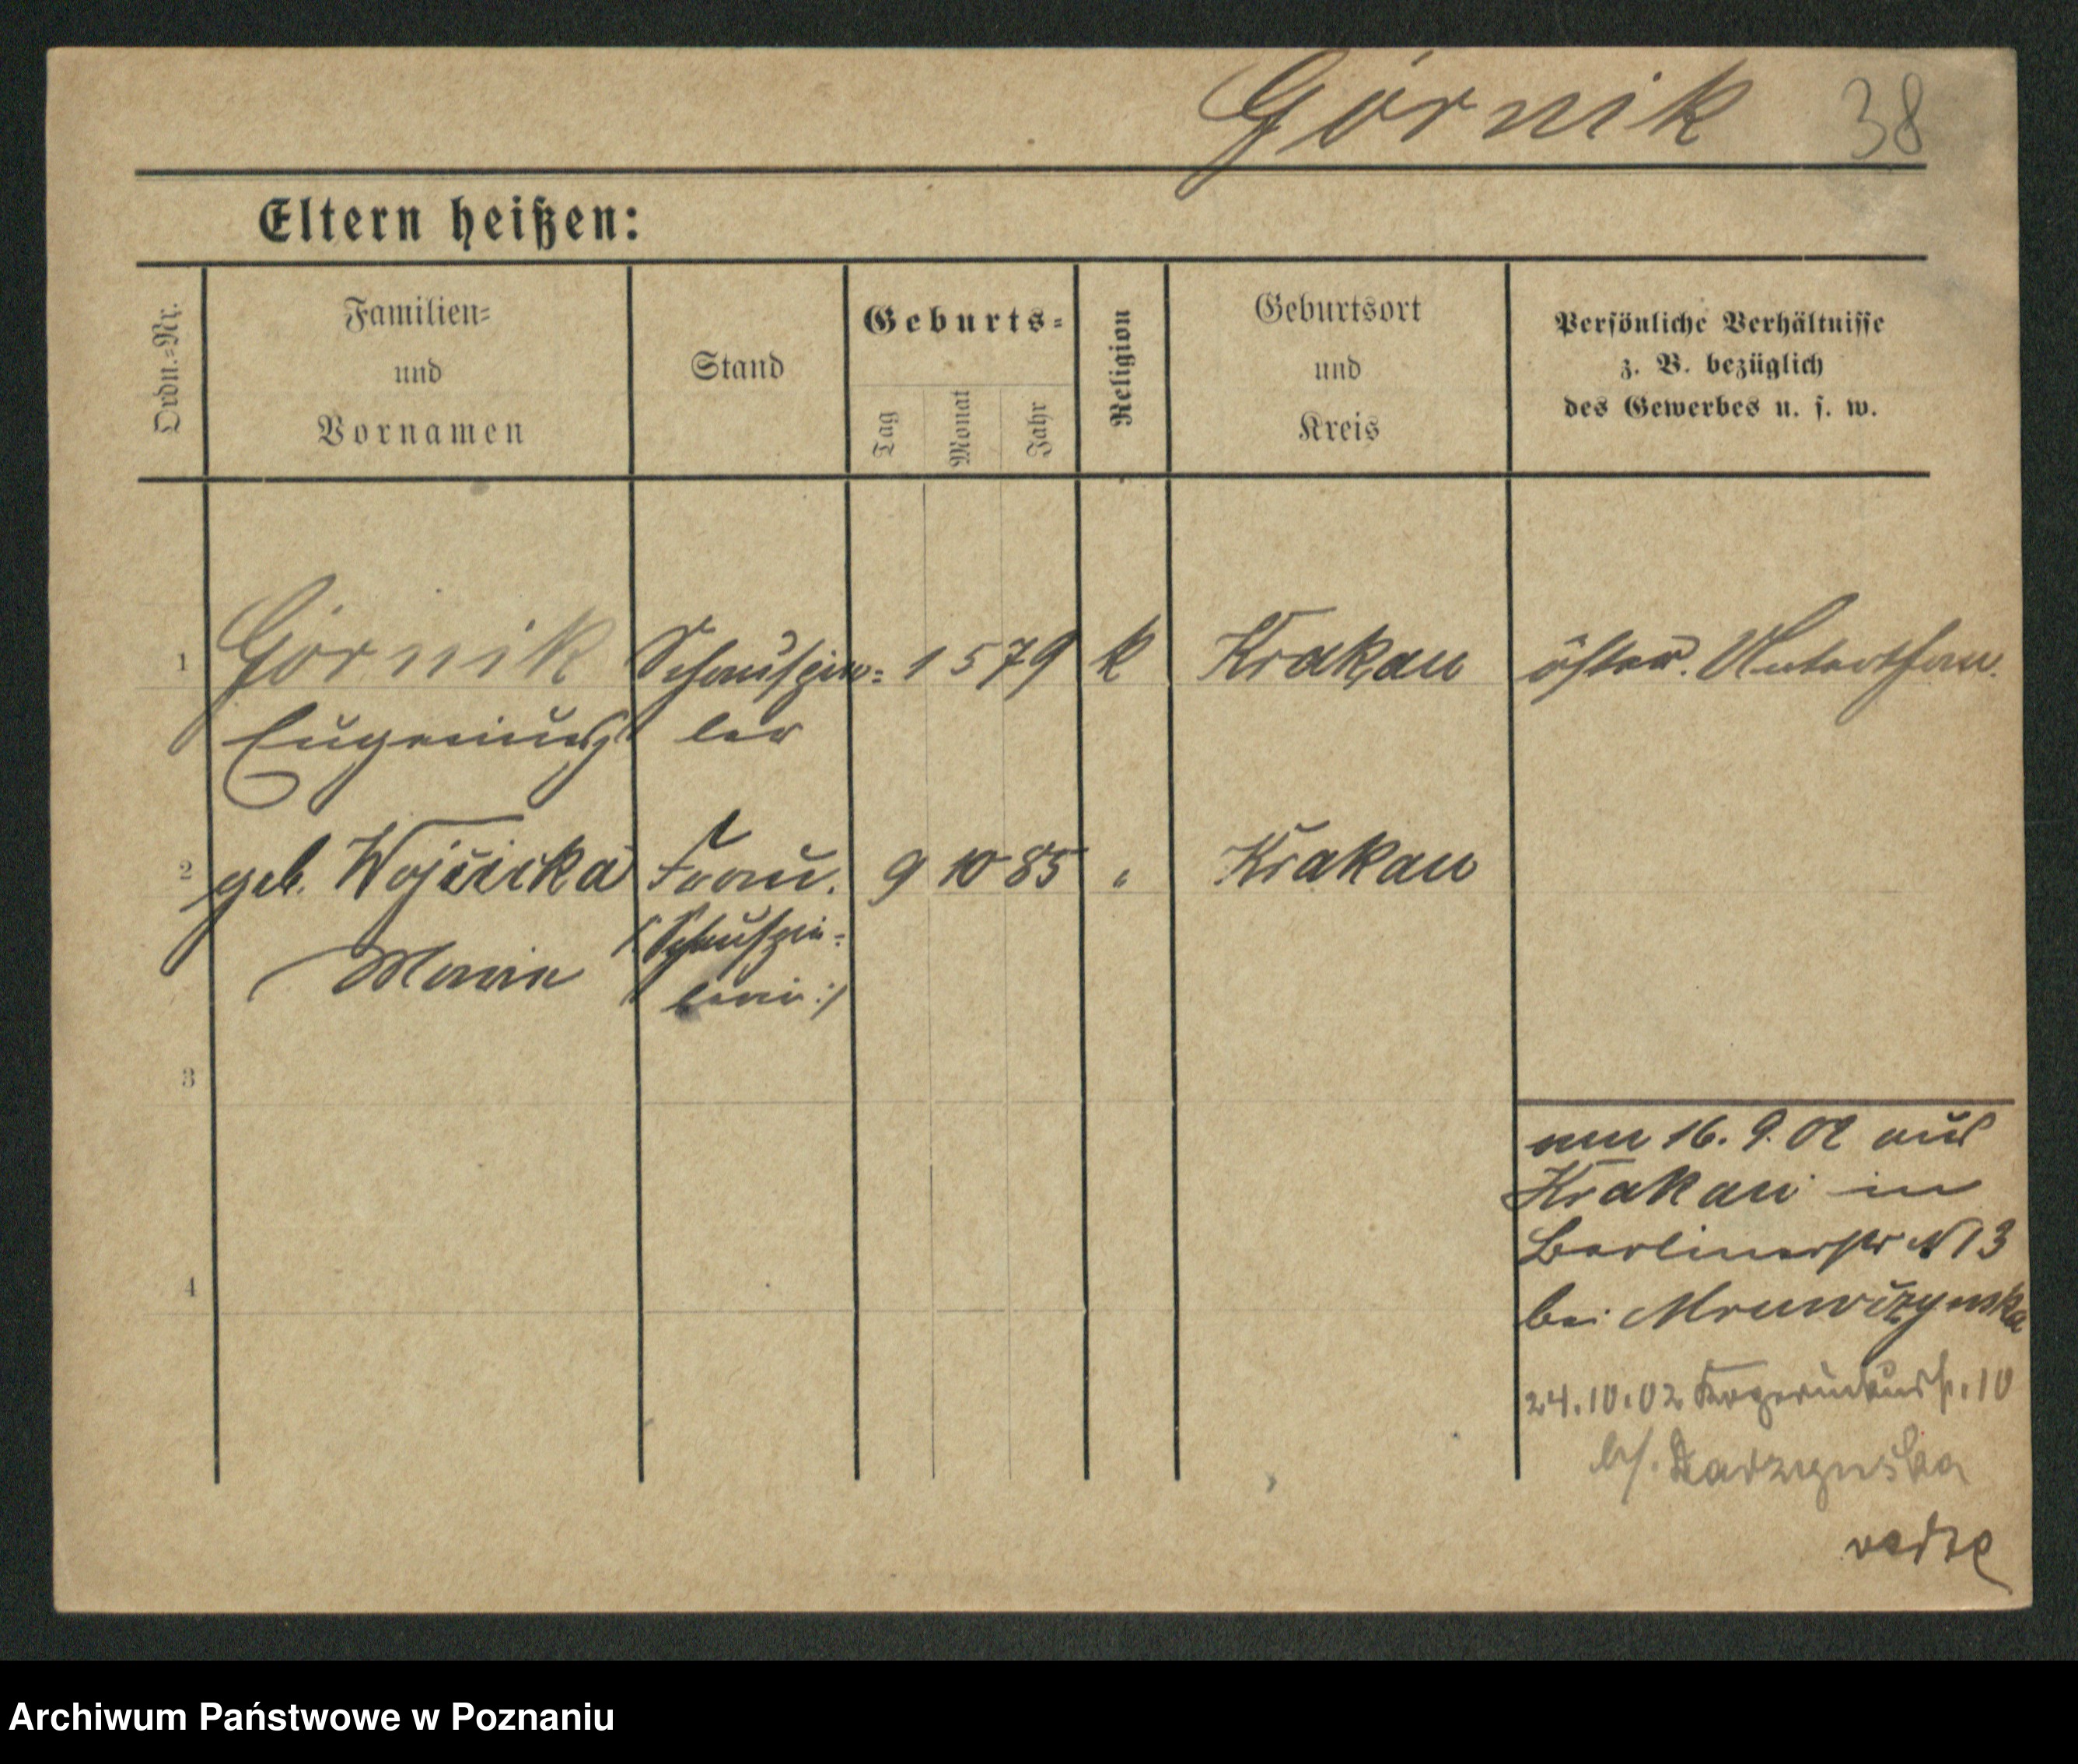 Górnik 38
Eltern heißen:
Ordn.=Nr.
Familien=
und
Vornamen
Stand
Geburts=
Tag
Monat
Jahr
Religion
Geburtsort
und
Kreis
Persönliche Verhältnisse
z. B. bezüglich
des Gewerbes u. s. w.
1 Górnik Schauspie= 1 5 79 k Krakau österr. Unterthan.
Eugeniusz ler
2 geb. Wojcicka Frau. 9 10 85 " Krakau
Maria (: Schauspie=
lerin :)
3
am 16. 9. 02 aus
Krakau in
Berlinerstr N 13
bei
4
24.10.02 10
b/.
Archiwum Państwowe w Poznaniu